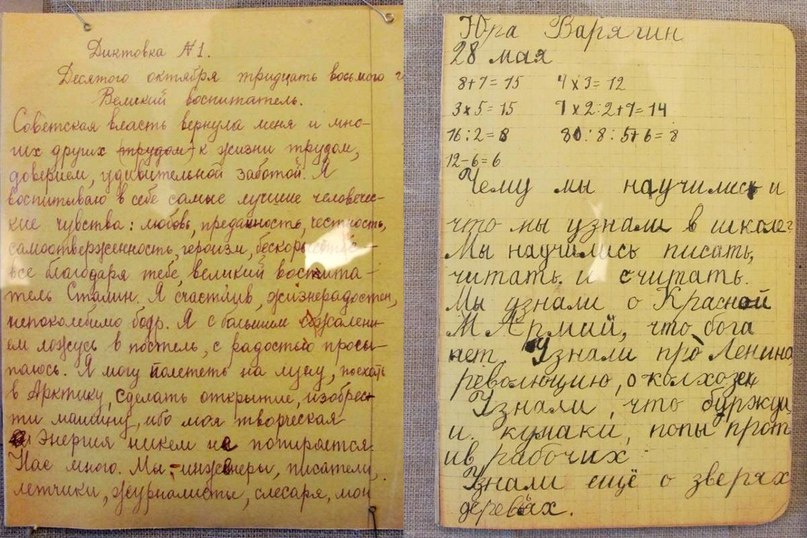 Диктовка №1.
Десятого октября тридцать восьмого г
Велский воспитатель.
Советская власть вернула меня и мно-
гих других трудом к жизни трудом,
доверием, удивительной заботой. Я
воспитываю в себе самые лучшие человечес-
кие чувства: любовь, преданность, честность,
самоотверженность, героизм,
все благодаря тебе, великий воспита-
тель Сталин. Я счастлив, жизнерадостен,
непоколебимо бодр. Я с большим сожалени-
ем ложусь в постель, с радостью просы-
паюсь. Я могу полететь на луну, поехать
в Арктику, сделать открытие, изобрес-
ти машину, ибо моя творческая
энергия никем не попирается.
Нас много. Мы - инженеры, писатели,
летчики, журналисты, слесаря, мон
Юра Варягин
28 мая
8+7=15 4х3=12
3х5=15 7х2:2+7=14
16:2=8 80:8:5+6=8
12-6=6
Чему мы научились и
что мы узнали в школе?
Мы научились писать,
читать и считать.
Мы узнали о Красной
М Армий, что бога
нет. Узнали про Ленина
революцию, о колхозах
Узнали, что буржуи
и кулаки, попы прот
ив рабочих.
Узнали ещё о зверях
деревьях.